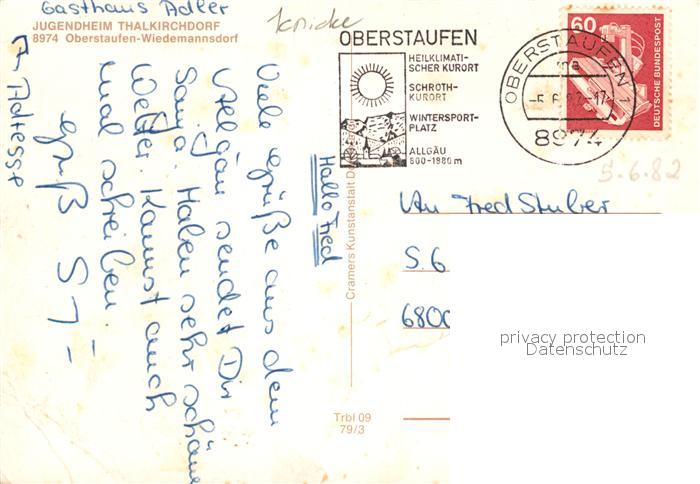 Gasthaus Adler
JUGENDHEIM THALKIRCHDORF
8974 Oberstaufen-Wiedemannsdorf
Adresse
Hallo Fred
Viele Grüße aus dem
Allgäu sendet Dir
Sanja. Haben sehr schönes
Wetter. Kannst auch
mal schreiben.
Gruß SJ
Cramers Kunstanstalt
Trbl 09
79/3
OBERSTAUFEN
HEILKLIMATI-
SCHER KURORT
SCHROTH-
KURORT
WINTERSPORT-
PLATZ
ALLGÄU
800-1880 m
OBERSTAUFEN 1
8974
60
DEUTSCHE BUNDESPOST
5.6.82
An Fred Stuber
S. 6
6800
privacy protection
Datenschutz